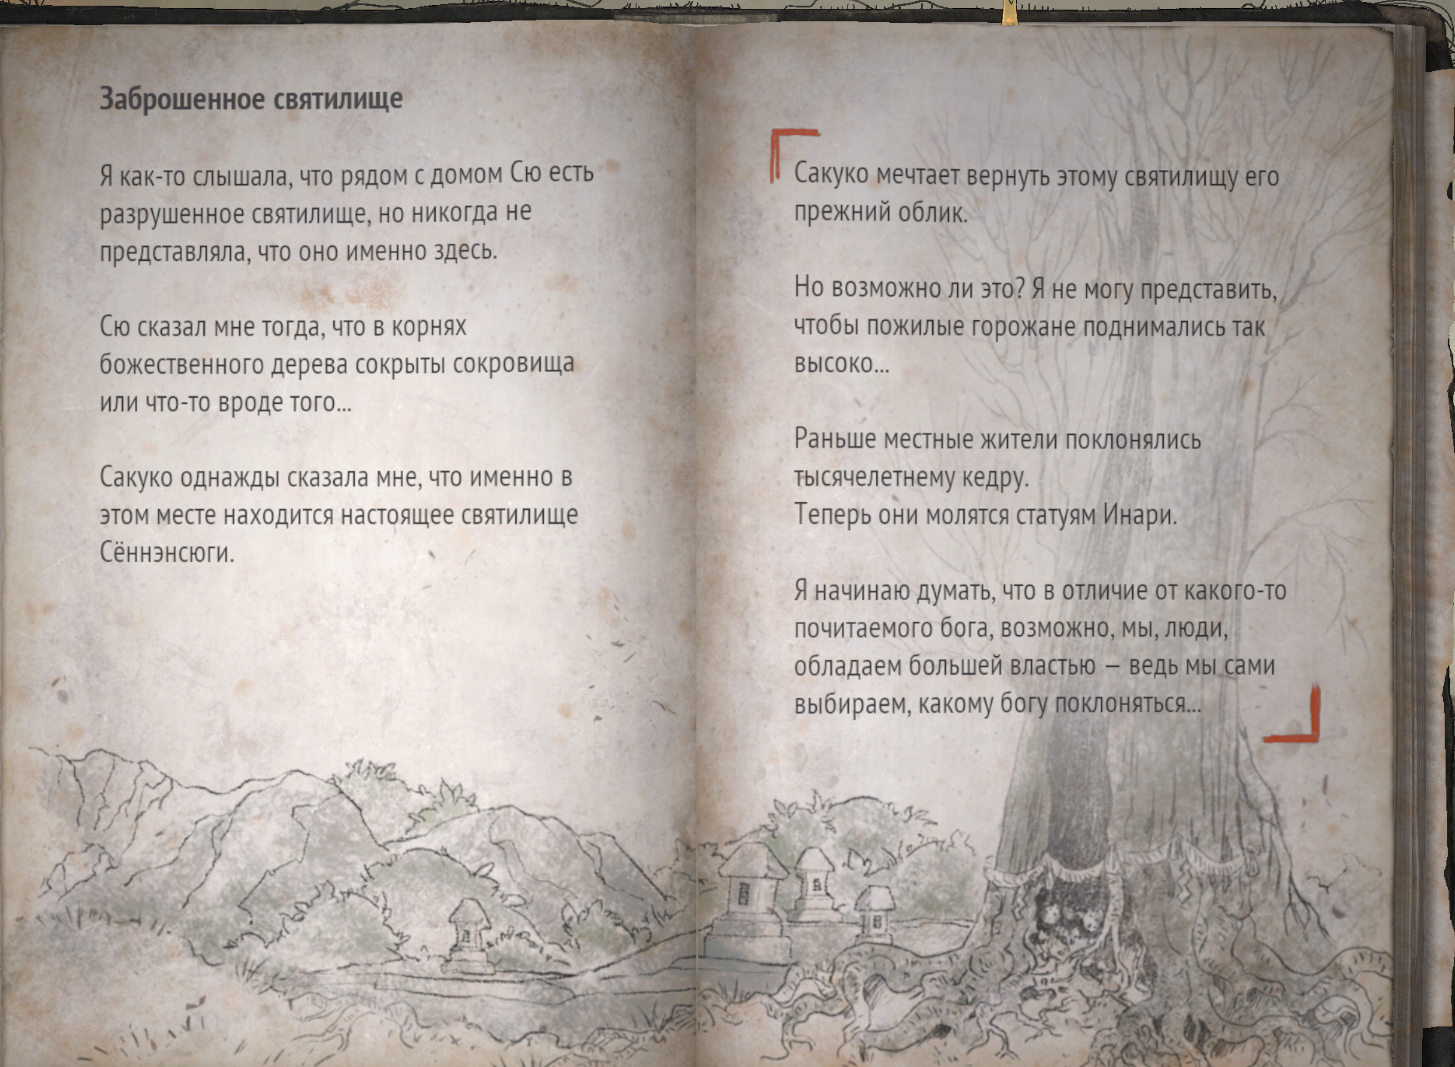 Заброшенное святилище
Я как-то слышала, что рядом с домом Сю есть
разрушенное святилище, но никогда не
представляла, что оно именно здесь.
Сю сказал мне тогда, что в корнях
божественного дерева сокрыты сокровища
или что-то вроде того...
Сакуко однажды сказала мне, что именно в
этом месте находится настоящее святилище
Сённэнсюги.
Сакуко мечтает вернуть этому святилищу его
прежний облик.
Но возможно ли это? Я не могу представить,
чтобы пожилые горожане поднимались так
высоко...
Раньше местные жители поклонялись
тысячелетнему кедру.
Теперь они молятся статуям Инари.
Я начинаю думать, что в отличие от какого-то
почитаемого бога, возможно, мы, люди,
обладаем большей властью — ведь мы сами
выбираем, какому богу поклоняться...